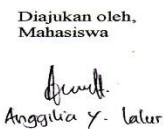 Diajukan oleh,
Mahasiswa
Anggilia Y. Lalur